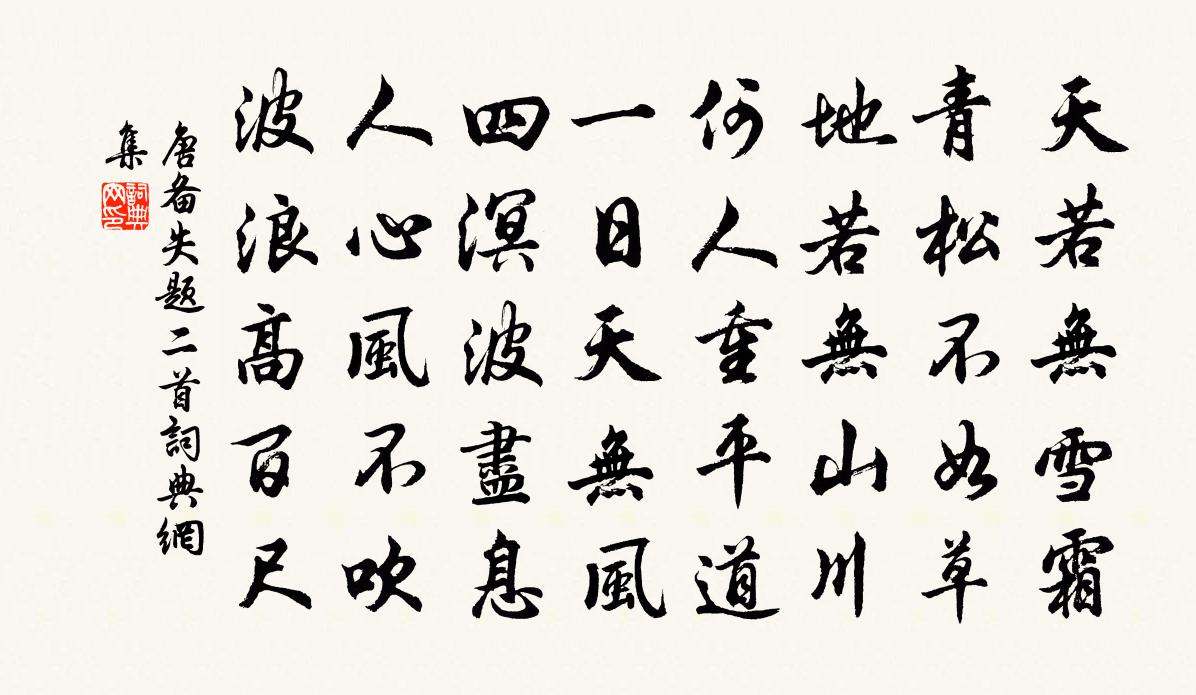 天若無雪霜
青松不如草
地若無山川
何人重平道
一日天無風
四溟波盡息
人心風不吹
波浪高百尺
唐备失题二首詞典網
集
詞典
网印